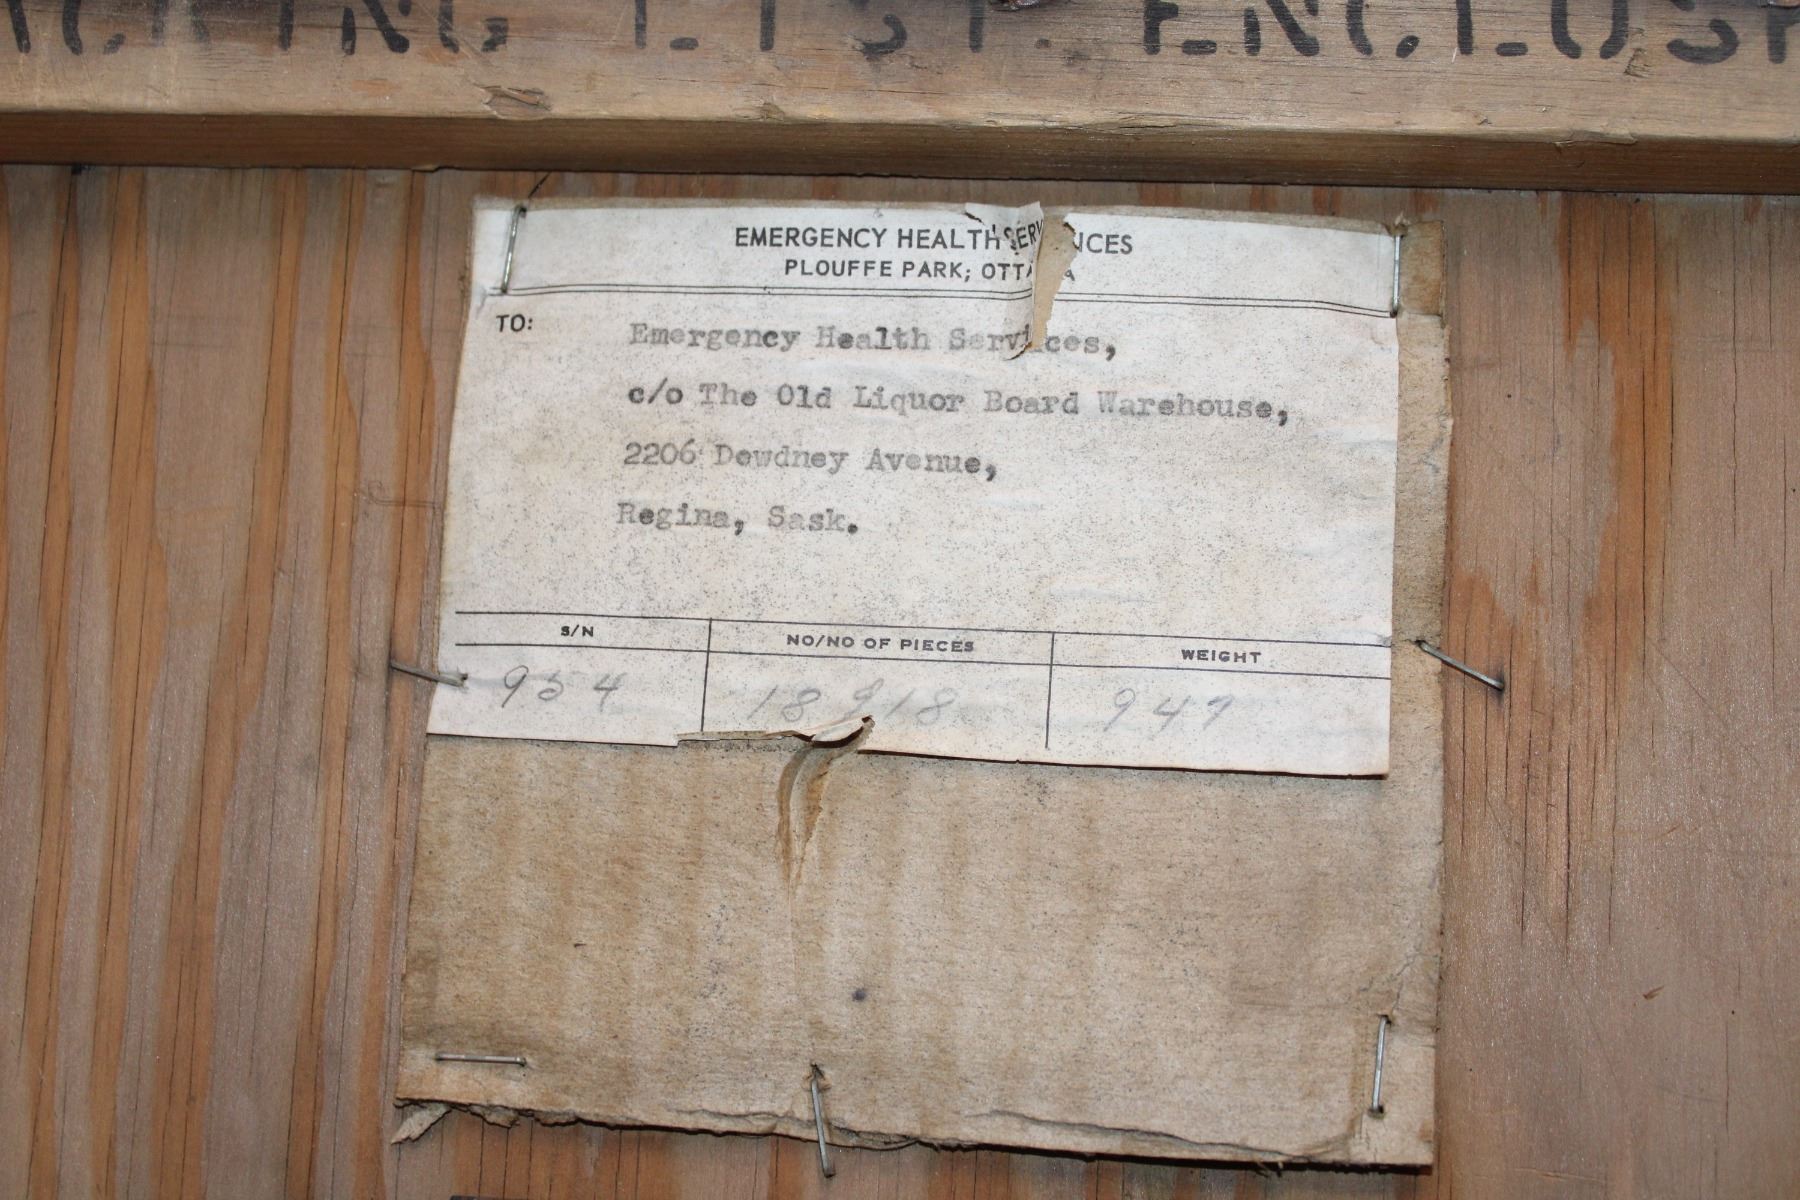 PACKING LIST. ENCLOSE
EMERGENCY HEALTH SERVICES
PLOUFFE PARK; OTTAWA
TO:
Emergency Health Services,
c/o The Old Liquor Board Warehouse,
2206 Dewdney Avenue,
Regina, Sask.
S/N NO/NO OF PIECES WEIGHT
954 18 9 18 947